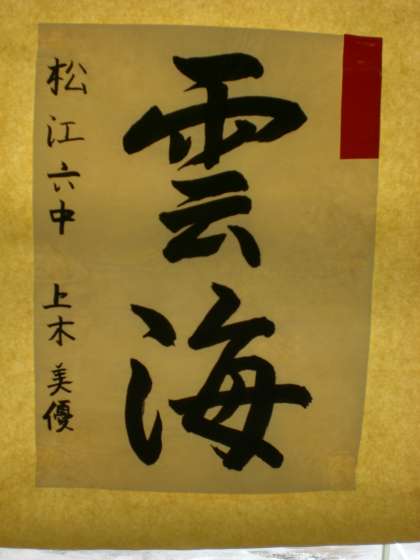 雲海
松江六中 上木美優